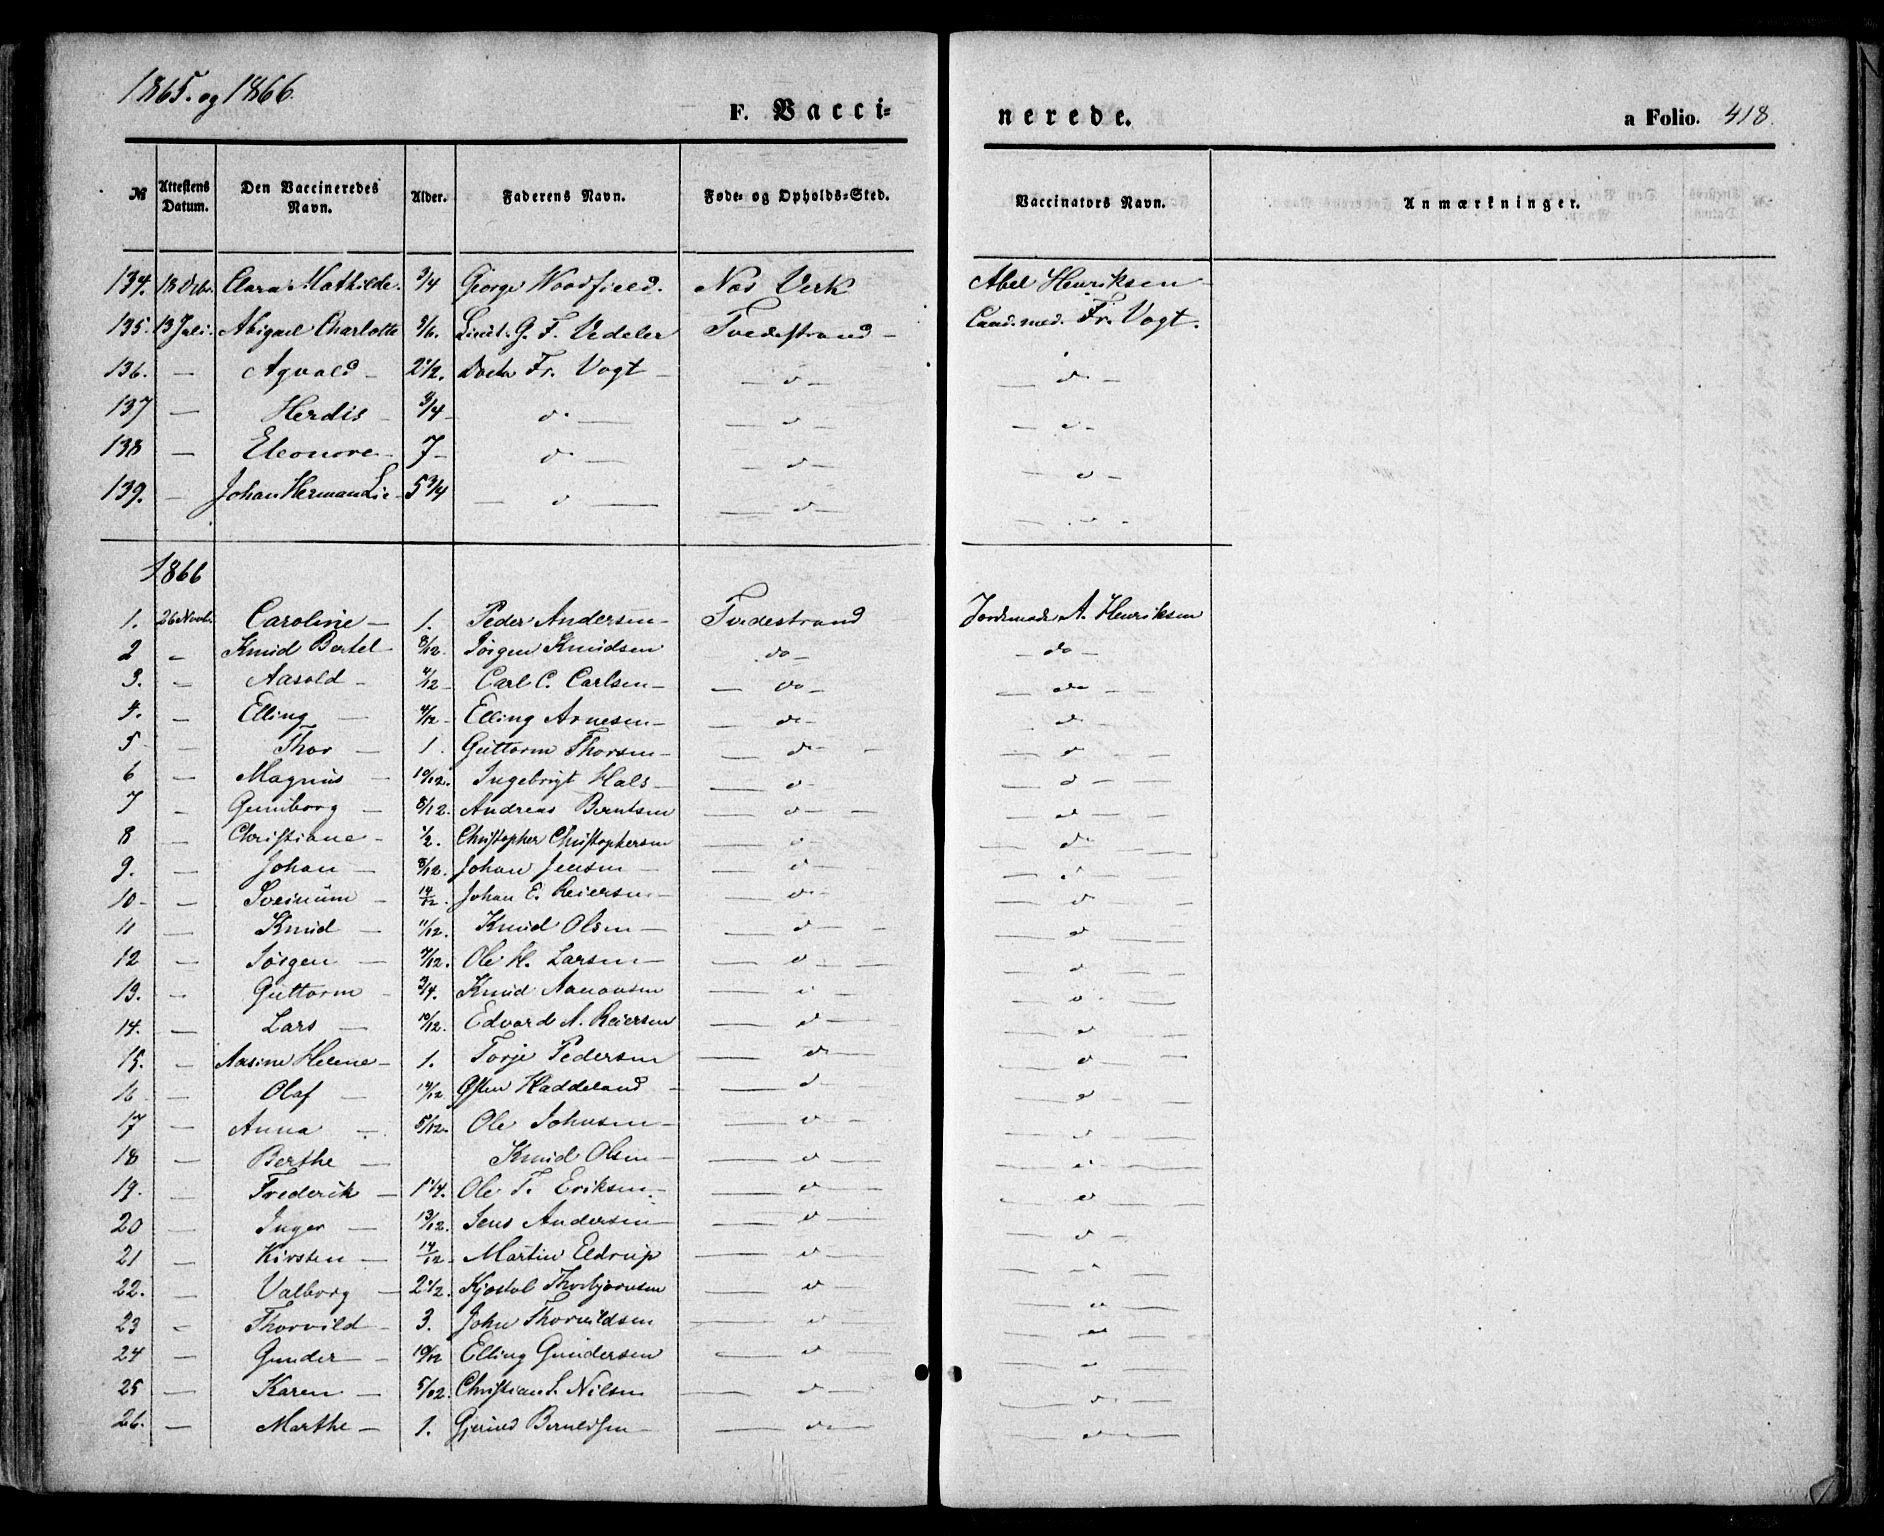 1865. og 1866.
F. Vacci=
nerede.
a Folio. 418.
№ Attestens Datum. Den Vaccineredes Navn. Alder. Faderens Navn. Føde- og Opholds-Sted. Vaccinators Navn. Anmærkninger.
134. 18 Clara Mathilde. 3/4 George Woodfield. Næs Verk Abel Henriksen
135. 13 Juli. Abigael Charlotte Lieut. G. F. Vedeler Tvedestrand - Cand. med. Fr. Vogt.
136. — Agvald - 2 1/2. Fr. Vogt - — d — — d —
137 — Herdis - 3/4 - d — — d — — d —
138 — Eleonore - 7 - d — — d — — d —
139. — Johan Herman Lie - 5 3/4 — d — — d — — d —
1866
1. 26 Novb. Caroline - 1. Peder Andersen - Tvedestrand Jordemoder A. Henriksen
2 - Knud Bertel - 8/12. Jørgen Knudsen do - - do -
3. - Aasold - Carl C. Carlsen - — do - — do —
4. - Elling — Elling Arnesen - — do - — d —
5 — Thor — 1. Guttorm Thorsen - — do - — d —
6 — Magnus - 10/12. Ingebrigt Hals - — d - — d —
7 - Gunborg — 8/12. Andreas Berntsen — d — — d —
8 — Christiane - 1/2. Christopher Christophersen — d - — d —
9. — Johan — 8/12. Johan Jensen — — d — — d —
10 - — - 14/12. Johan E. Reiersen - — d - — d —
11 — Knud — 11/12. Knud Olsen — — d — — d —
12 — Jørgen — 7/12. Ole H. Larsen — — d — — d —
13. - Guttorm - 3/4. Knud — d - — d —
14. — Lars — 10/12. Edvard A. Reiersen — d — — d —
15. — Aasine Helene - 1. Torje Pedersen — d — — d —
16 — Olaf — Østen Haddeland - — d — — d —
17 — Anna — 5/12. Ole Johnsen — — d — — d —
18 — Berthe — Knud Olsen — — d — — d —
19. — Frederik — 1 1/4. Ole T. Eriksen — d — — d —
20 — Inger — 13/12. Jens Andersen — — d — — d —
21 — Kirsten — 14/12 - Martin Eldrup — d — — d —
22. — Valborg — 2 1/2. Thorbjørnsen — d — — d —
23 - Thorvild - 3. John Thorvildsen — d — — d —
24 — Gunder — 10/12 Elling Gundersen — d — — d —
25 — Karen — 5/12. Christian L. Nilsen — d — — d —
26. — Marthe — 1. — d — — d —